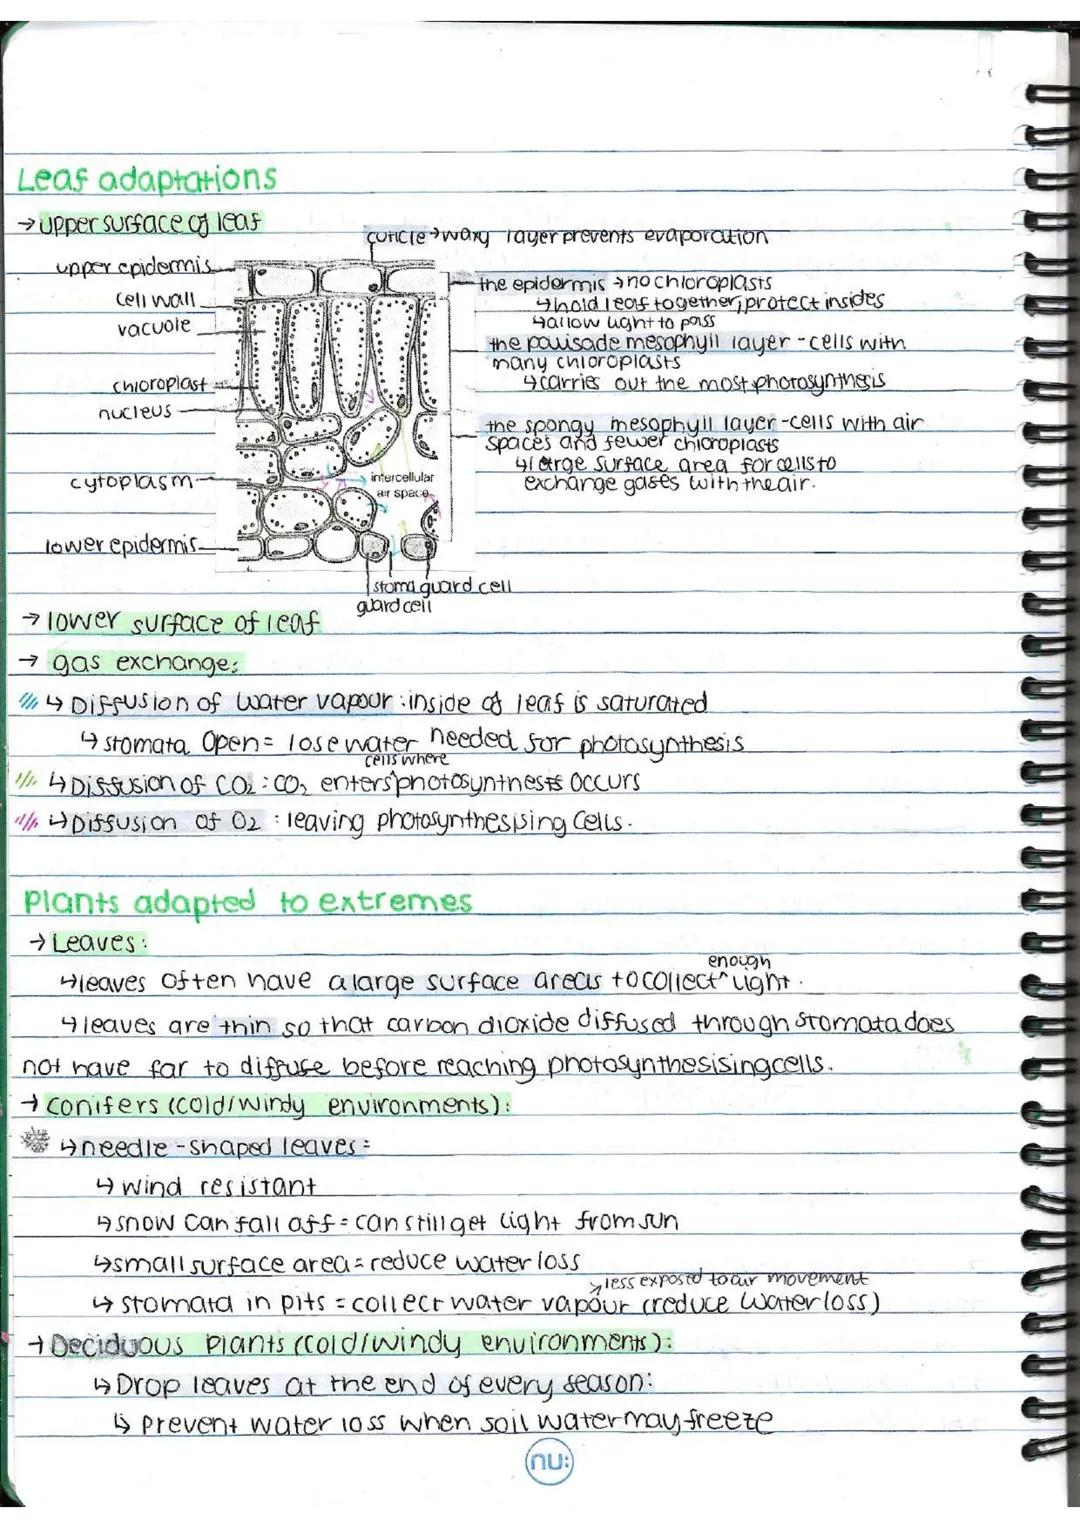 Leaf adaptations
→ upper surface of leaf
cuticle → waxy layer prevents evaporation
upper epidermis
cell wall
vacuole
chloroplast
nucleus
cytoplasm
lower epidermis
the epidermis → no chloroplasts
↳ hold leaf together, protect insides
↳ allow light to pass
the palisade mesophyll layer - cells with
many chloroplasts
↳ carries out the most photosynthesis
the spongy mesophyll layer - cells with air
spaces and fewer chloroplasts
↳ large surface area for cells to
exchange gases with the air.
intercellular
air space
stoma guard cell
guard cell
→ lower surface of leaf
→ gas exchange:
↳ Diffusion of water vapour : inside of leaf is saturated
↳ stomata open = lose water needed for photosynthesis
cells where
↳ Diffusion of CO2 : CO2 enters photosynthesis occurs
↳ Diffusion of O2 : leaving photosynthesising cells.
Plants adapted to extremes
→ Leaves:
enough
↳ leaves often have a large surface areas to collect ^ light.
↳ leaves are thin so that carbon dioxide diffused through stomata does
not have far to diffuse before reaching photosynthesising cells.
→ conifers (cold/windy environments):
↳ needle-shaped leaves:
↳ wind resistant
↳ snow can fall off = can still get light from sun
↳ small surface area = reduce water loss
↘ less exposed to air movement
↳ stomata in pits = collect water vapour (reduce water loss)
→ Deciduous plants (cold/windy environments):
↳ Drop leaves at the end of every season:
↳ prevent water loss when soil water may freeze
nu: